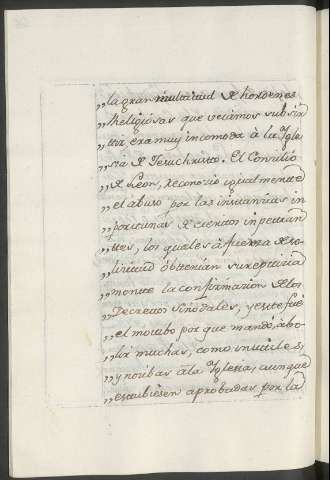 „la gran multitud de hordenes
„Religiosas que veiamos subsis
„tir, era muy incomoda à la Igle
„sia de Jesuchristo. El Consilio
„de Leon, reconozio igualmente
„el abuso por las instanzias in
„portunas de ciertos inpetran
„tes, los quales à fuerza de so
„lizitud obtenian surepticia
„mente la confirmazion de los
„Decretos Sinodales, y este fue
„el motibo por que mandó, abo
„lir muchas, como inutiles,
„y nozibas à la Iglesia, aunque
„estubiesen aprobadas por la